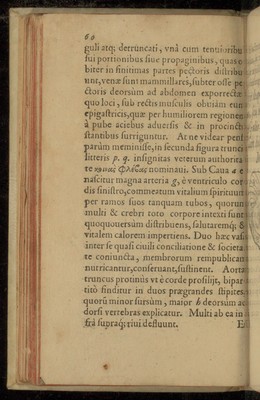 60
guli atq; detruncati, vnâ cum tenuioribus
sui portionibus siue propaginibus, quas o
biter in finitimas partes pectoris distribu
unt, venæ sunt mammillares, subter osse pe
ctoris deorsùm ad abdomen exporrectæ
quo loci, sub rectis musculis obuiam eun
epigastricis, quæ per humiliorem regionem
à pube aciebus aduersis & in procinctu
stantibus surriguntur. At ne videar perf
parùm meminisse, in secunda figura truncos
litteris p. q. insignitas veterum authorita
te nominaui. Sub Caua a e
nascitur magna arteria g, è ventriculo cor
dis sinistro, commeatum vitalium spirituum
per ramos suos tanquam tubos, quorum
multi & crebri toto corpore intexti sunt
quoquouersùm distribuens, salutaremq; &
vitalem calorem impertiens. Duo hæc vasa
inter se quasi ciuili conciliatione & societa
te coniuncta, membrorum rempublicam
nutricantur, conseruant, sustinent. Aortæ
truncus protinùs vt è corde prosilijt, bipar
titò finditur in duos prægrandes stipites
quorū minor sursùm, maior h deorsùm ad
dorsi vertebras explicatur. Multi ab ea in
frà supraq; riui defluunt.